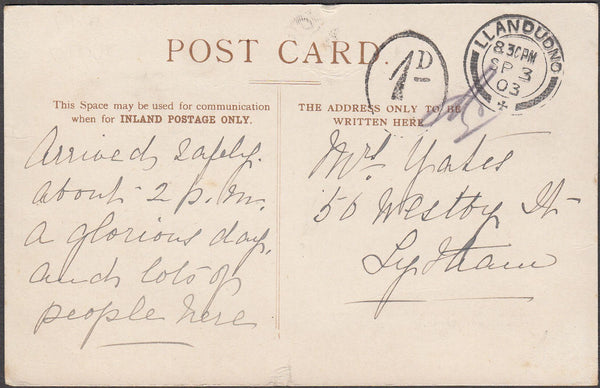 POST CARD
1D
LLANDUDNO
8.30PM
SP 3
03
This Space may be used for communication
when for INLAND POSTAGE ONLY.
THE ADDRESS ONLY TO BE
WRITTEN HERE
Arrived safely.
about 2 p.m.
a glorious day.
and lots of
people here
Mrs Yates
50 Westby St
Lytham